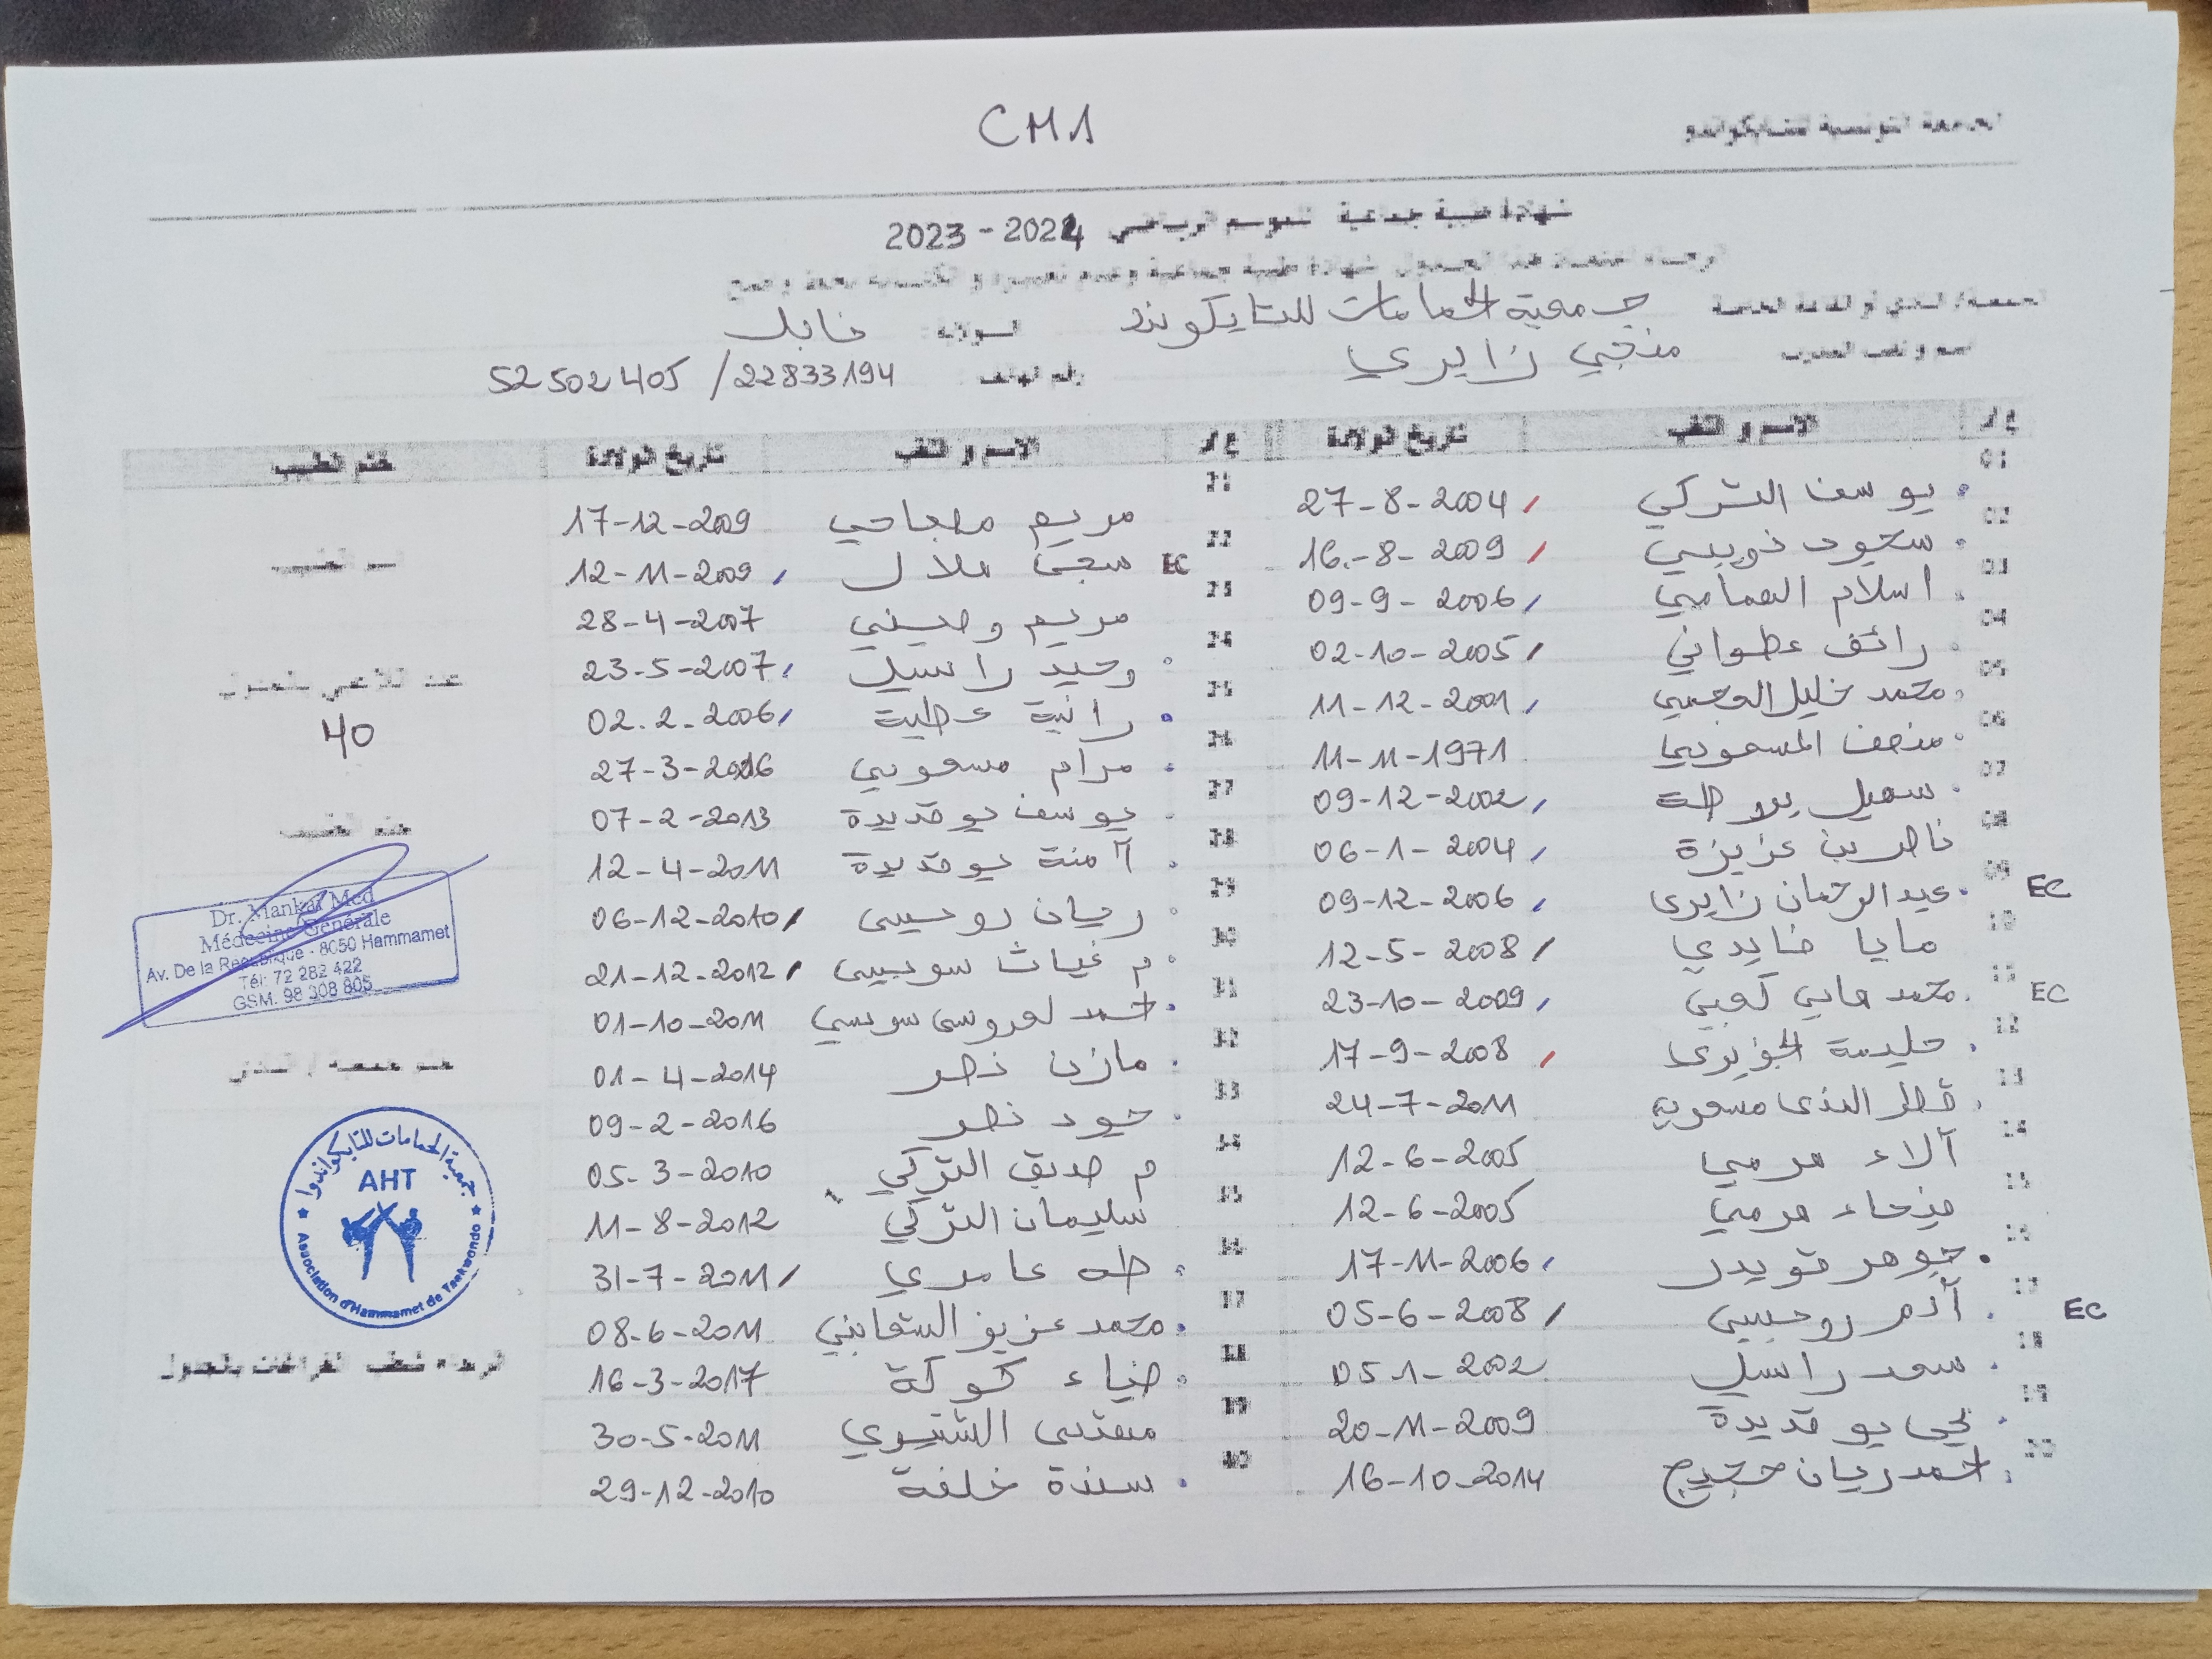 CM1
الجامعة التونسية للتايكواندو
شهادة طبية جماعية للموسم الرياضي 2023-2024
شهادة طبية جماعية
جمعية الحمامات للتايكوندو الولاية: نابل
اسم و لقب المدرب منجي زايري رقم الهاتف 52502405 / 22833194
ع/ر الاسم و اللقب تاريخ الولادة ع/ر الاسم و اللقب تاريخ الولادة ختم الطبيب
01 يوسف التركي 27-8-2004
02 سعود ذويبي 16-8-2009
03 اسلام الهمامي 09-9-2006
04 رائف عطواني 02-10-2005
05 محمد خليل العجمي 11-12-2001
06 منصف المسعودي 11-11-1971
07 سهيل 09-12-2002
08 ناصر بن عزيزة 06-1-2004
09 عبد الرحمان زايري 09-12-2006 EC
10 مايا 12-5-2008
11 محمد هادي كعبي 23-10-2009 EC
12 حليمة 17-9-2008
13 قطر الندى مسعودي 24-7-2011
14 آلاء مرمي 12-6-2005
15 فيحاء مرمي 12-6-2005
16 جوهر قويدر 17-11-2006
17 آدم روحيبي 05-6-2008 EC
18 سعد راسيل 05-1-2002
19 يحي بو قديدة 20-11-2009
20 احمد ريان حجيج 16-10-2014
21 مريم 17-12-2009
22 سجى ملال 12-11-2009 EC
23 مريم 28-4-2007
24 وحيد راسيل 23-5-2007
25 رانية عطية 02.2.2006
26 مرام مسعودي 27-3-2016
27 يوسف بو قديدة 07-2-2013
28 آمنة بو قديدة 12-4-2011
29 ريان روحيبي 06-12-2010
30 م غياث سويسي 21-12-2012
31 احمد لعروسي سويسي 01-10-2011
32 مازن نصر 01-4-2014
33 نصر 09-2-2016
34 م صديق التركي 05-3-2010
35 سليمان التركي 11-8-2012
36 طه عامري 31-7-2011
37 محمد عزيز 08-6-2011
38 ضياء كوكة 16-3-2017
39 الشتيوي 30-5-2011
40 سندة خلفة 29-12-2010
اسم الطبيب
عدد اللاعبين بالجدول
40
ختم الطبيب
Dr. Mankai Med
Médecine Générale
Av. De la République - 8050 Hammamet
Tél: 72 282 422
GSM: 98 308 805
ختم الجمعية / النادي
جمعية الحمامات للتايكواندوا
AHT
Association d'Hammamet de Taekwondo
الرجاء شطب الفراغات بالجدول